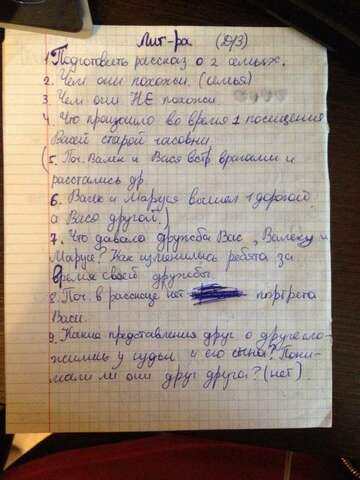 Лит-ра (Д/З)
1. Подготовить рассказ о 2 семьях.
2. Чем они похожи. (семья)
3. Чем они НЕ похожи.
4. Что произошло во время 1 посещения
Васей старой часовни
(5. Поч. Валек и Вася встр врагами и
расстались др.
6. Валек и Маруся
1 дорогой,
а Вася другой.)
7. Что давала дружба Вас, Валеку и
Марусе? Как изменились ребята за
время своей дружбы.
8. Поч. в рассказе нет портрета
Васи.
9. Какие представления друг о друге сло-
жились у судьи и его сына? Пони-
мали ли они друг друга? (нет)